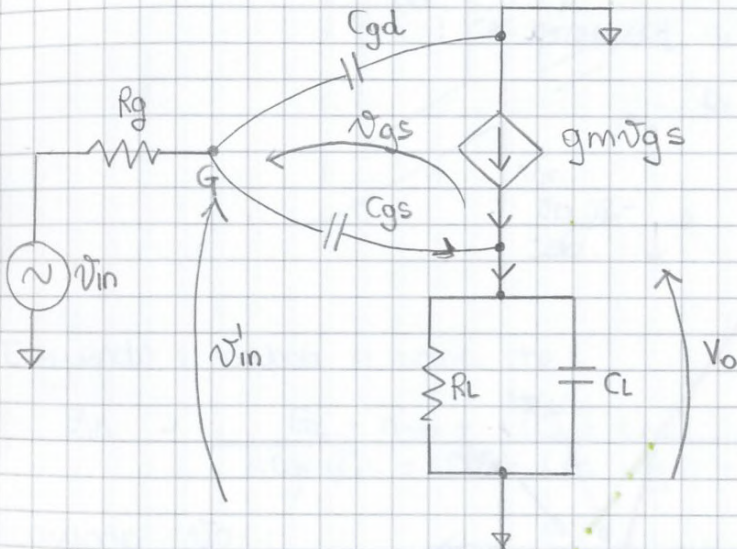 Cgd
Rg
vgs
gmvgs
G
Cgs
vin
v'in
RL
CL
Vo